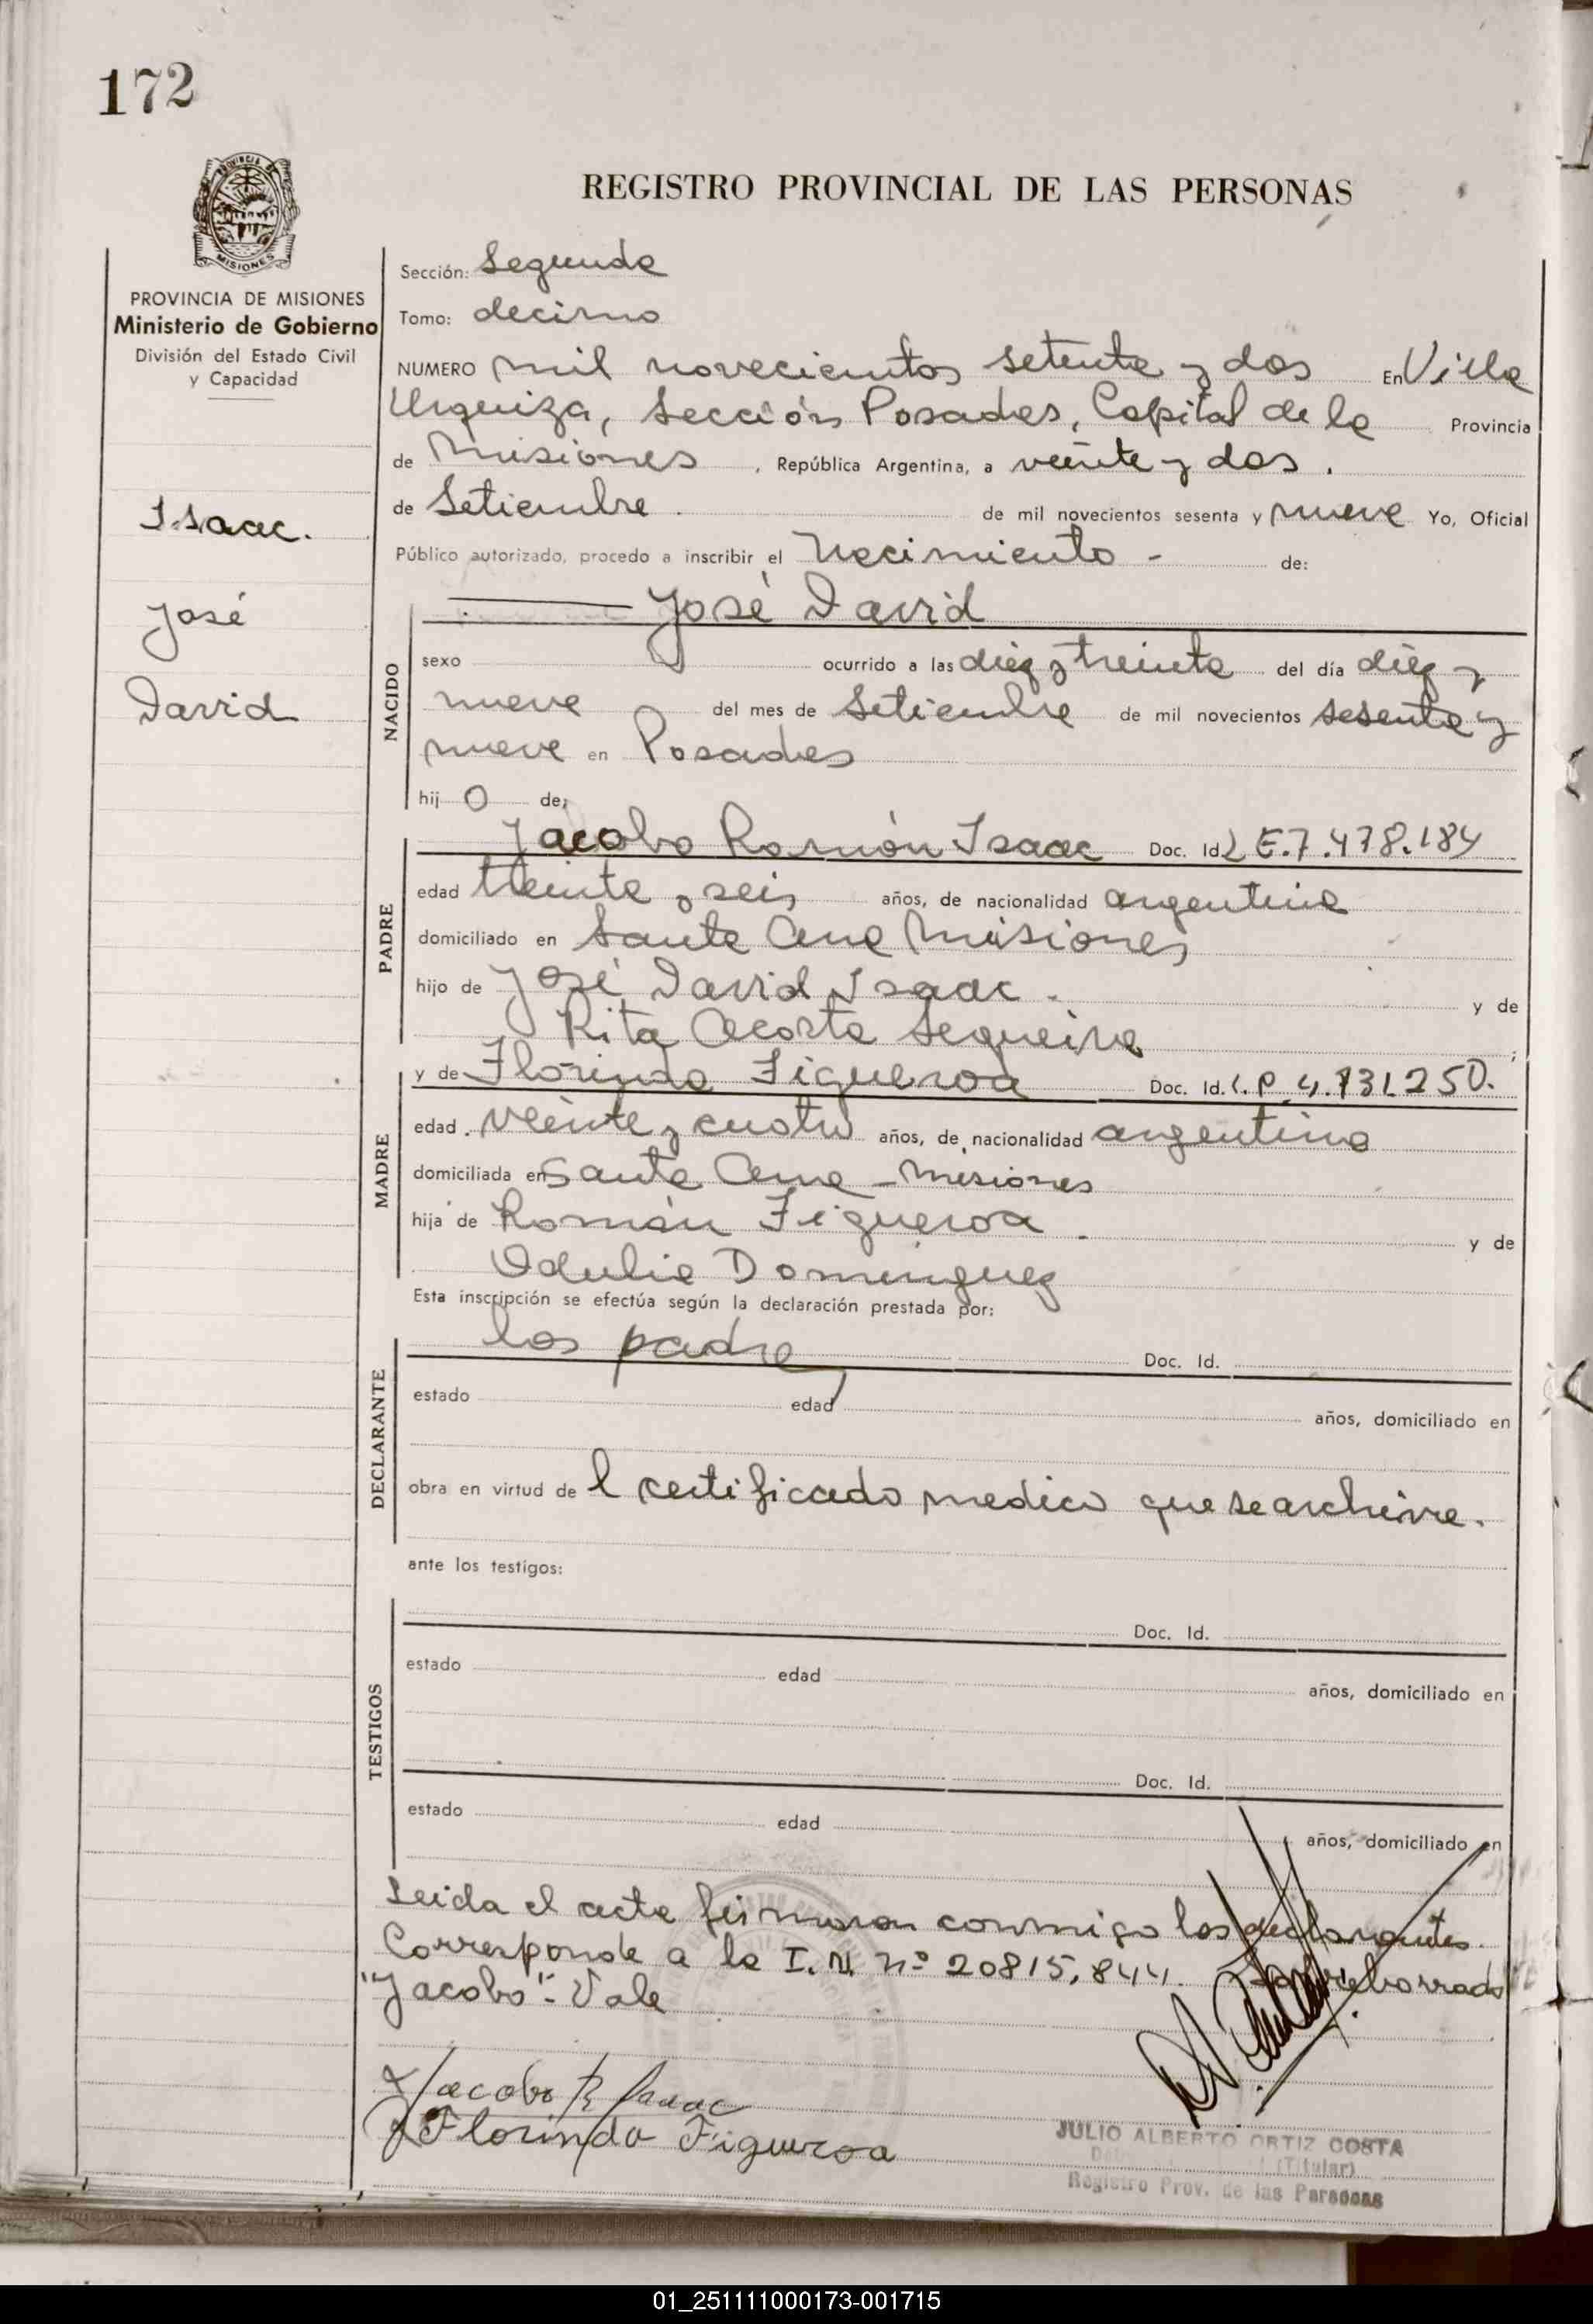 172
PROVINCIA DE
MISIONES
REGISTRO PROVINCIAL DE LAS PERSONAS
PROVINCIA DE MISIONES
Ministerio de Gobierno
División del Estado Civil
y Capacidad
Isaac.
José
David
Sección: Segunda
Tomo: decimo
NUMERO mil novecientos setenta y dos En Villa
Urquiza, Sección Posadas, Capital de la Provincia
de Misiones, República Argentina, a veinte y dos.
de Setiembre. de mil novecientos sesenta y nueve Yo, Oficial
Público autorizado, procedo a inscribir el Nacimiento - de:
José David
NACIDO
sexo ocurrido a las diez y treinta del día diez y
nueve del mes de Setiembre de mil novecientos sesenta y
nueve en Posadas
hij o de;
PADRE
Jacobo Ramón Isaac Doc. Id. L E. 7.478.184
edad treinta y seis años, de nacionalidad argentina
domiciliado en Santa Ana Misiones
hijo de José David Isaac. y de
Rita Acosta Sequeira ;
MADRE
y de Florinda Figueroa Doc. Id. C.P. 4.731.250.
edad. veinte y cuatro años, de nacionalidad argentina
domiciliada en Santa Ana - Misiones
hija de Román Figueroa. y de
Odulia Dominguez
Esta inscripción se efectúa según la declaración prestada por:
DECLARANTE
los padres Doc. Id.
estado edad años, domiciliado en
obra en virtud de l certificado medico que se archiva.
ante los testigos:
TESTIGOS
Doc. Id.
estado edad años, domiciliado en
Doc. Id.
estado edad años, domiciliado en
Leida el acta firmaron conmigo los declarantes.
Corresponde a la I.N. nº 20815,844. Sobreborrado
"Jacobo"- Vale
Jacobo R Isaac
Florinda Figueroa
JULIO ALBERTO ORTIZ COSTA
(Titular)
Registro Prov. de las Personas
01_251111000173-001715